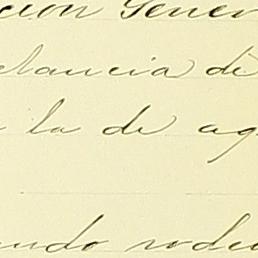 cion Gener
elancia de
la de ag
ando rode